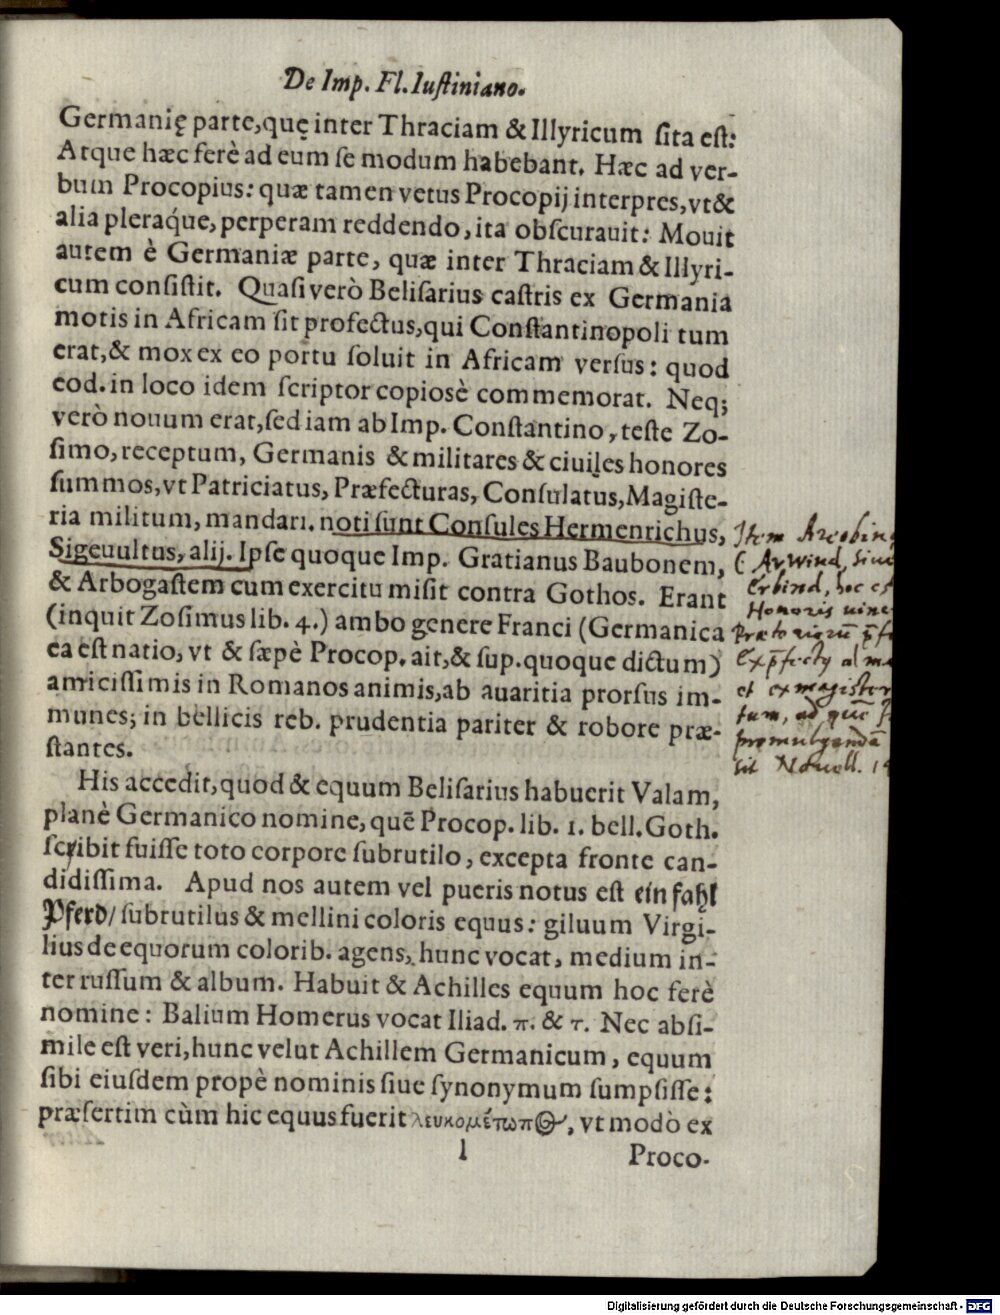 De Imp. Fl. Iuſtiniano.
Germanię parte, quę inter Thraciam & Illyricum ſita eſt:
Atque hæc ferè ad eum ſe modum habebant. Hæc ad ver-
bum Procopius: quæ tamen vetus Procopij interpres, vt &
alia pleraq́ue, perperam reddendo, ita obſcurauit: Mouit
autem è Germaniæ parte, quæ inter Thraciam & Illyri-
cum conſiſtit. Quaſi verò Beliſarius caſtris ex Germania
motis in Africam ſit profectus, qui Conſtantinopoli tum
erat, & mox ex eo portu ſoluit in Africam verſus: quod
eod. in loco idem ſcriptor copiosè commemorat. Neq;
verò nouum erat, ſed iam ab Imp. Conſtantino, teſte Zo-
ſimo, receptum, Germanis & militares & ciuiles honores
ſummos, vt Patriciatus, Præfecturas, Conſulatus, Magiſte-
ria militum, mandari. noti ſunt Conſules Hermenrichus,
Sigeuultus, alij. Ipſe quoque Imp. Gratianus Baubonem,
& Arbogaſtem cum exercitu miſit contra Gothos. Erant
(inquit Zoſimus lib. 4.) ambo genere Franci (Germanica
ea eſt natio, vt & ſæpè Procop. ait, & ſup. quoque dictum)
amiciſſimis in Romanos animis, ab auaritia prorſus im-
munes; in bellicis reb. prudentia pariter & robore præ-
ſtantes.
His accedit, quod & equum Beliſarius habuerit Valam,
planè Germanico nomine, quē Procop. lib. 1. bell. Goth.
ſcribit fuiſſe toto corpore ſubrutilo, excepta fronte can-
didiſſima. Apud nos autem vel pueris notus eſt ein fahl
Pferd/ ſubrutilus & mellini coloris equus: giluum Virgi-
lius de equorum colorib. agens, hunc vocat, medium in-
ter ruſſum & album. Habuit & Achilles equum hoc ferè
nomine: Balium Homerus vocat Iliad. π. & τ. Nec abſi-
mile eſt veri, hunc velut Achillem Germanicum, equum
ſibi eiuſdem propè nominis ſiue ſynonymum ſumpſiſſe:
præſertim cùm hic equus fuerit λευκομέτωπος, vt modò ex
l
Proco-
Item Areobin
( Arwind, siue
Erbind, hoc es
Honoris
Prætorium
et ex magister
tum, ad quē
promulgandā
sit Nouell. 1
Digitalisierung gefördert durch die Deutsche Forschungsgemeinschaft - DFG